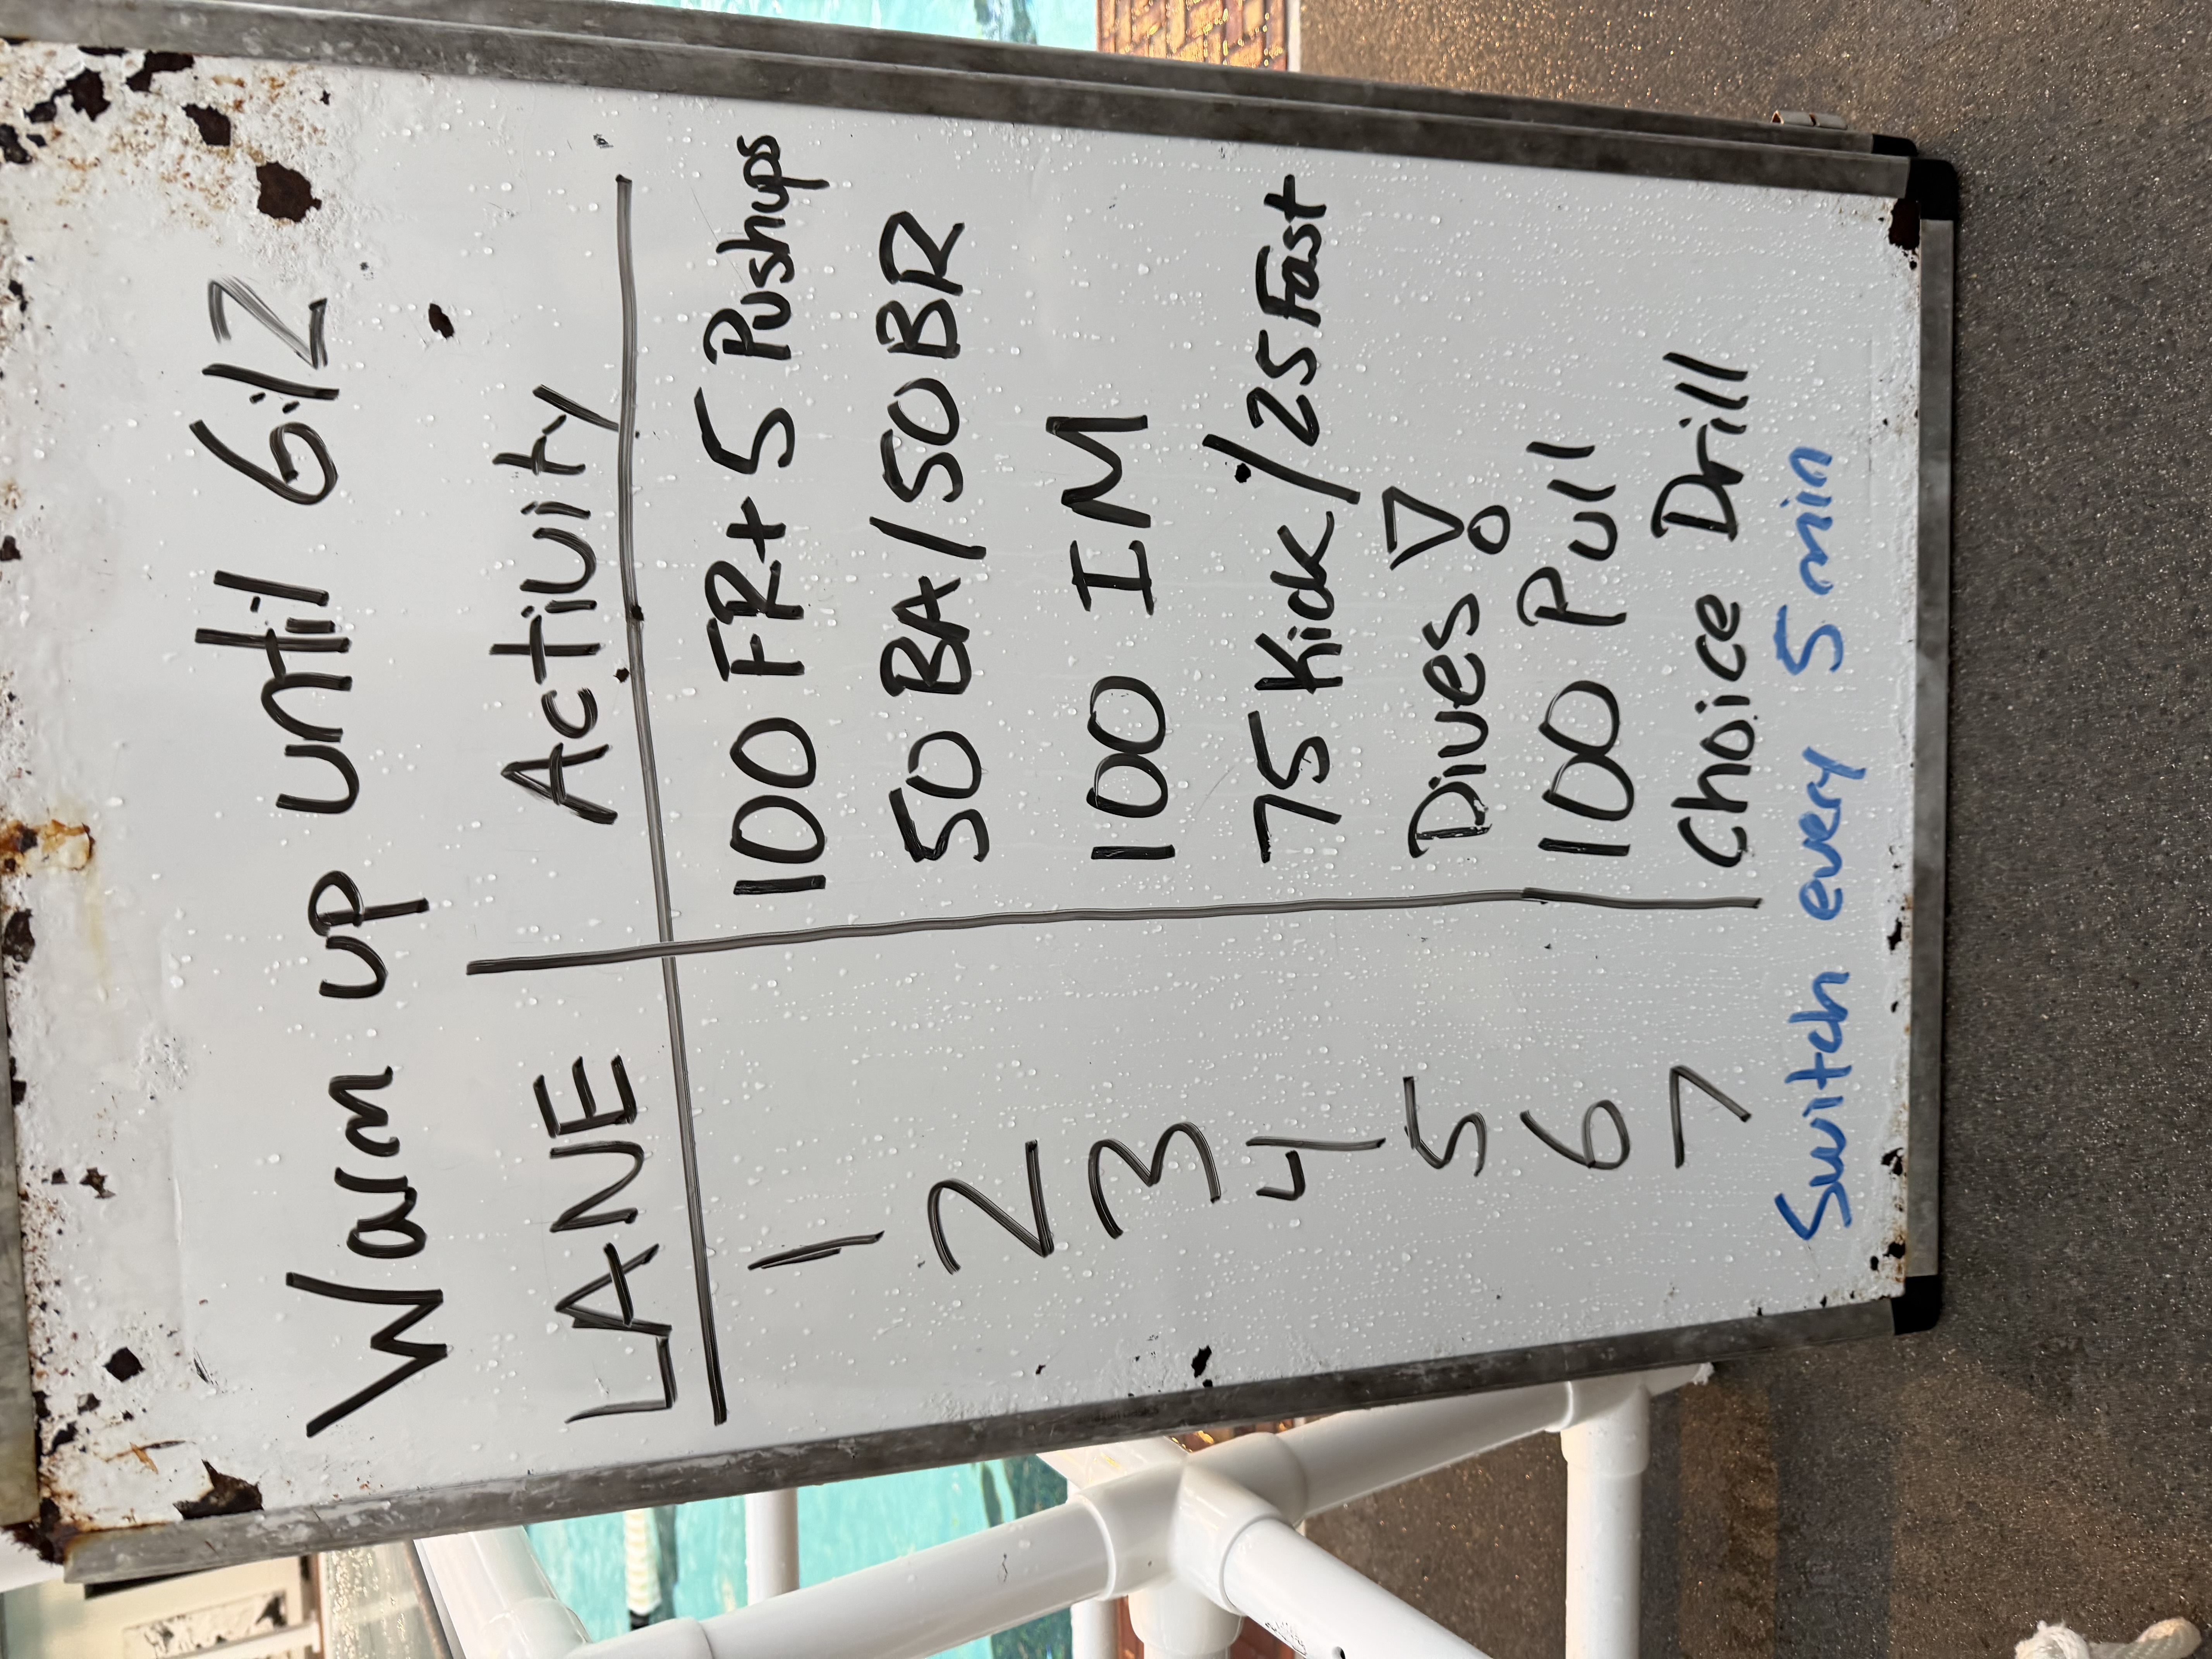 Warm up until 6:12
LANE Activity
1 100 FR + 5 Pushups
2 50 BA/50 BR
3 100 IM
4 75 Kick/25 Fast
5 Dives!
6 100 Pull
7 Choice Drill
Switch every 5 min